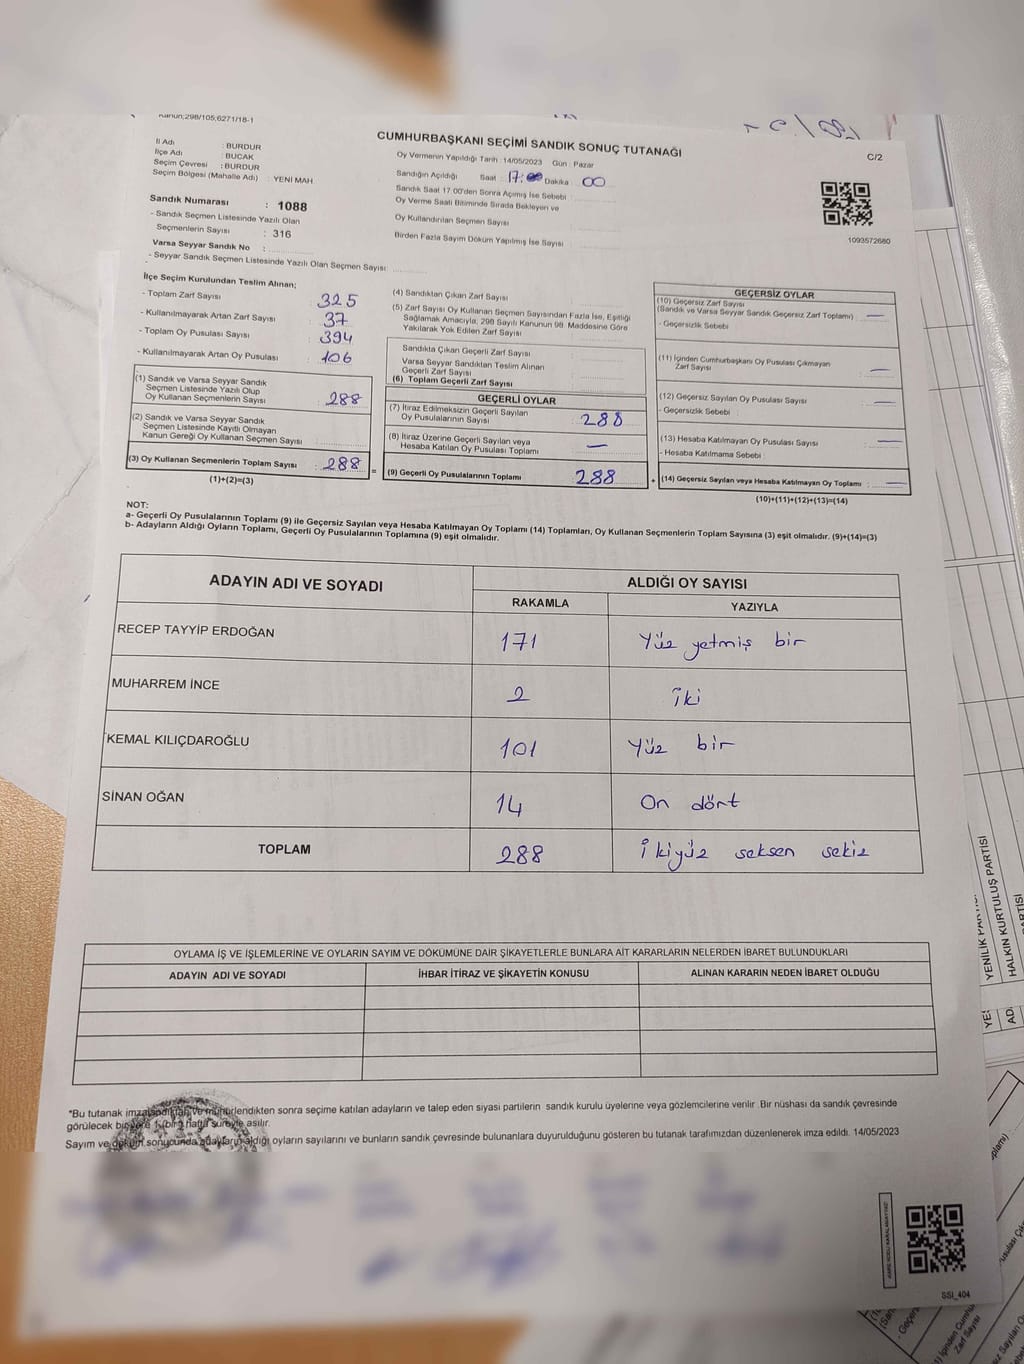 Kanun;298/105;6271/18-1
CUMHURBAŞKANI SEÇİMİ SANDIK SONUÇ TUTANAĞI
C/2
İl Adı : BURDUR
İlçe Adı : BUCAK
Seçim Çevresi : BURDUR
Seçim Bölgesi (Mahalle Adı) : YENİ MAH
Oy Vermenin Yapıldığı Tarih : 14/05/2023 Gün : Pazar
Sandığın Açıldığı Saat : 17:00 Dakika : 00
Sandık Saat 17:00'den Sonra Açımış İse Sebebi :
Oy Verme Saati Bitiminde Sırada Bekleyen ve
Oy Kullandırılan Seçmen Sayısı :
Birden Fazla Sayım Döküm Yapılmış İse Sayısı :
1093572680
Sandık Numarası : 1088
- Sandık Seçmen Listesinde Yazılı Olan
Seçmenlerin Sayısı : 316
Varsa Seyyar Sandık No :
- Seyyar Sandık Seçmen Listesinde Yazılı Olan Seçmen Sayısı:
İlçe Seçim Kurulundan Teslim Alınan;
- Toplam Zarf Sayısı 325
- Kullanılmayarak Artan Zarf Sayısı : 37
- Toplam Oy Pusulası Sayısı : 394
- Kullanılmayarak Artan Oy Pusulası : 106
(1) Sandık ve Varsa Seyyar Sandık
Seçmen Listesinde Yazılı Olup
Oy Kullanan Seçmenlerin Sayısı : 288
(2) Sandık ve Varsa Seyyar Sandık
Seçmen Listesinde Kayıtlı Olmayan
Kanun Gereği Oy Kullanan Seçmen Sayısı :
(3) Oy Kullanan Seçmenlerin Toplam Sayısı : 288
(1)+(2)=(3)
=
(4) Sandıktan Çıkan Zarf Sayısı :
(5) Zarf Sayısı Oy Kullanan Seçmen Sayısından Fazla İse, Eşitliği
Sağlamak Amacıyla; 298 Sayılı Kanunun 98. Maddesine Göre
Yakılarak Yok Edilen Zarf Sayısı :
Sandıkta Çıkan Geçerli Zarf Sayısı :
Varsa Seyyar Sandıktan Teslim Alınan
Geçerli Zarf Sayısı :
(6) Toplam Geçerli Zarf Sayısı :
GEÇERLİ OYLAR
(7) İtiraz Edilmeksizin Geçerli Sayılan
Oy Pusulalarının Sayısı : 288
(8) İtiraz Üzerine Geçerli Sayılan veya
Hesaba Katılan Oy Pusulası Toplamı : —
(9) Geçerli Oy Pusulalarının Toplamı : 288
+
GEÇERSİZ OYLAR
(10) Geçersiz Zarf Sayısı
(Sandık ve Varsa Seyyar Sandık Geçersiz Zarf Toplamı) : —
- Geçersizlik Sebebi :
(11) İçinden Cumhurbaşkanı Oy Pusulası Çıkmayan
Zarf Sayısı : —
(12) Geçersiz Sayılan Oy Pusulası Sayısı : —
- Geçersizlik Sebebi :
(13) Hesaba Katılmayan Oy Pusulası Sayısı : —
- Hesaba Katılmama Sebebi :
(14) Geçersiz Sayılan veya Hesaba Katılmayan Oy Toplamı : —
(10)+(11)+(12)+(13)=(14)
NOT:
a- Geçerli Oy Pusulalarının Toplamı (9) ile Geçersiz Sayılan veya Hesaba Katılmayan Oy Toplamı (14) Toplamları, Oy Kullanan Seçmenlerin Toplam Sayısına (3) eşit olmalıdır. (9)+(14)=(3)
b- Adayların Aldığı Oyların Toplamı, Geçerli Oy Pusulalarının Toplamına (9) eşit olmalıdır.
ADAYIN ADI VE SOYADI
ALDIĞI OY SAYISI
RAKAMLA YAZIYLA
RECEP TAYYİP ERDOĞAN 171 Yüz yetmiş bir
MUHARREM İNCE 2 iki
KEMAL KILIÇDAROĞLU 101 Yüz bir
SİNAN OĞAN 14 On dört
TOPLAM 288 İkiyüz seksen sekiz
OYLAMA İŞ VE İŞLEMLERİNE VE OYLARIN SAYIM VE DÖKÜMÜNE DAİR ŞİKAYETLERLE BUNLARA AİT KARARLARIN NELERDEN İBARET BULUNDUKLARI
ADAYIN ADI VE SOYADI İHBAR İTİRAZ VE ŞİKAYETİN KONUSU ALINAN KARARIN NEDEN İBARET OLDUĞU
*Bu tutanak imzalandıktan ve mühürlendikten sonra seçime katılan adayların ve talep eden siyasi partilerin sandık kurulu üyelerine veya gözlemcilerine verilir. Bir nüshası da sandık çevresinde
görülecek bir yere 1 (bir) hafta süreyle asılır.
Sayım ve döküm sonucunda adayların aldığı oyların sayılarını ve bunların sandık çevresinde bulunanlara duyurulduğunu gösteren bu tutanak tarafımızdan düzenlenerek imza edildi. 14/05/2023
SSI_404
HALKIN KURTULUŞ PARTİSİ
PARTİSİ
İçinden
Zarf Sayısı